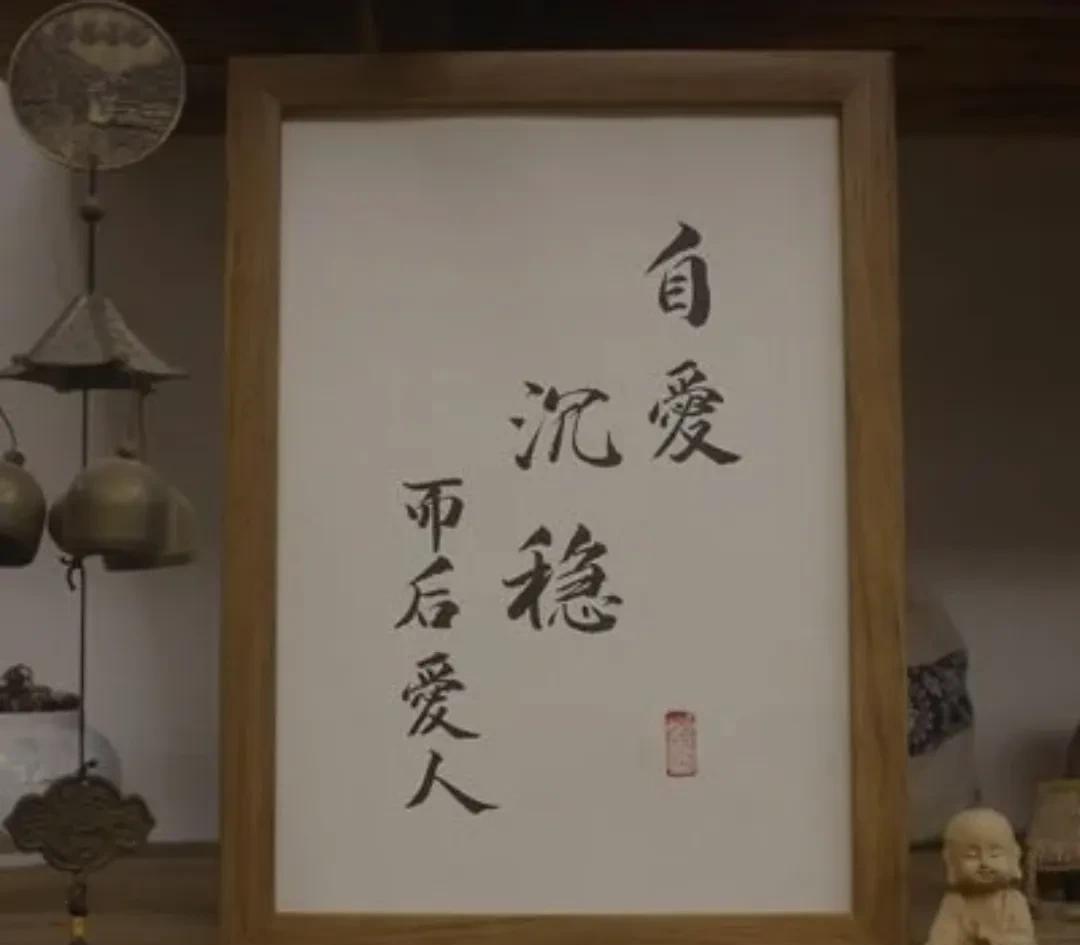 自愛
沉穏
而后愛人